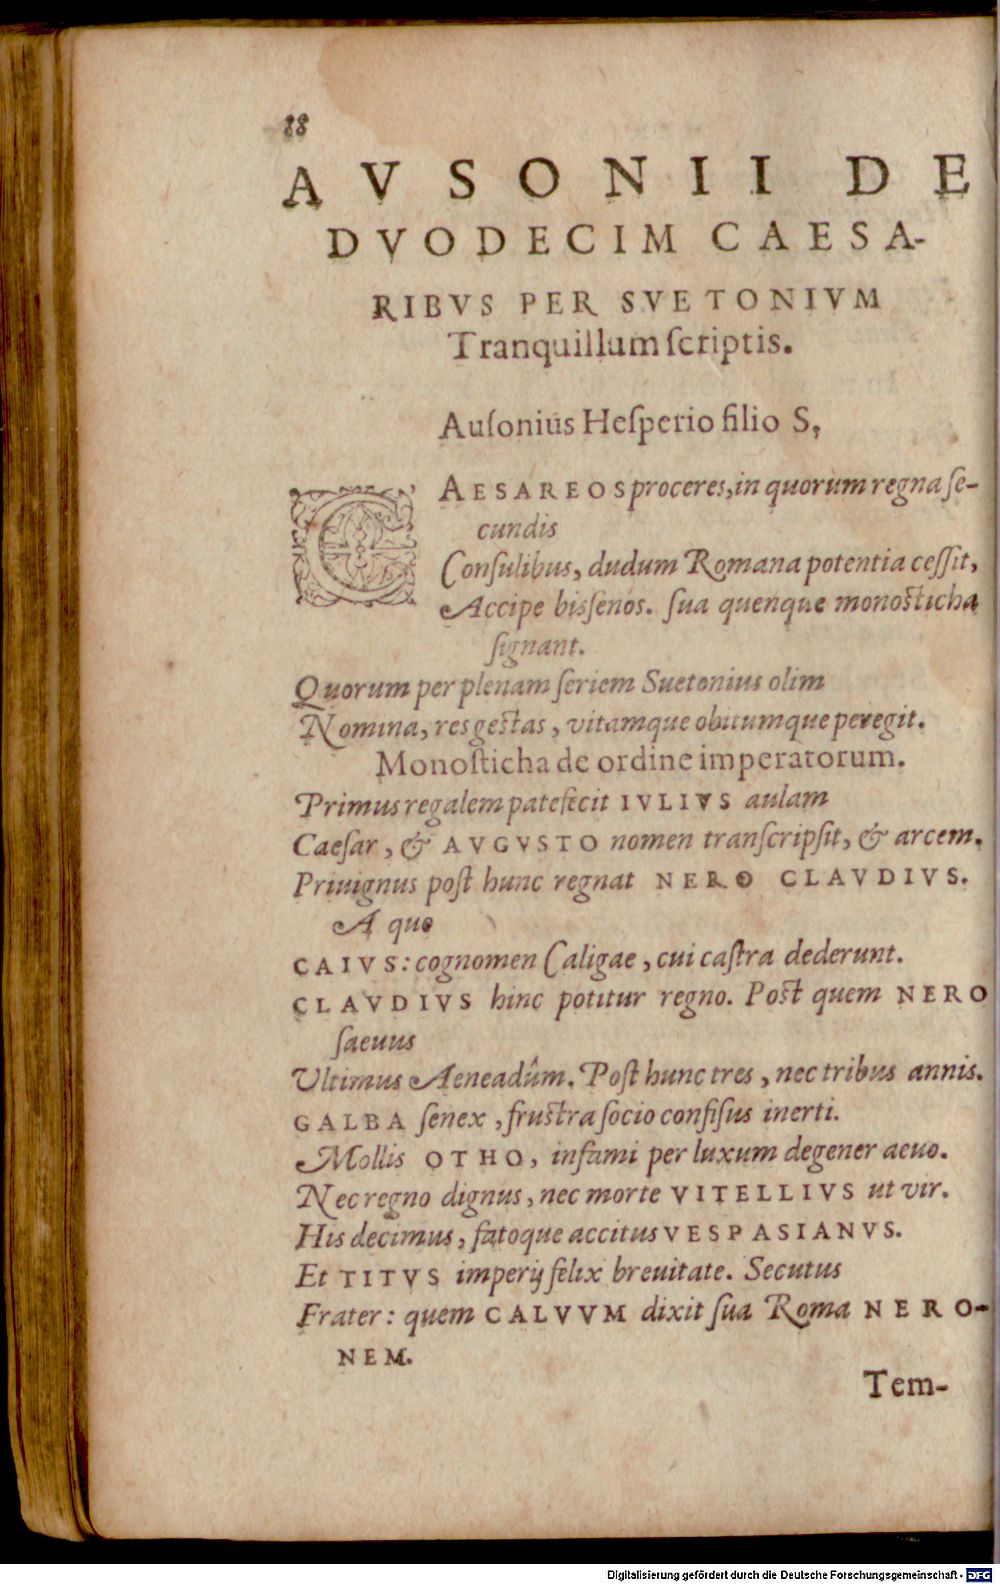 88
AVSONII DE
DVODECIM CAESA-
RIBVS PER SVETONIVM
Tranquillum ſcriptis.
Auſonius Heſperio filio S,
CAESAREOS proceres, in quorum regna ſe-
cundis
Conſulibus, dudum Romana potentia ceſſit,
Accipe biſſenos. ſua quenque monoſticha
ſignant.
Quorum per plenam ſeriem Suetonius olim
Nomina, res geſtas, vitamque obitumque peregit.
Monoſticha de ordine imperatorum.
Primus regalem patefecit IVLIVS aulam
Caeſar, & AVGVSTO nomen tranſcripſit, & arcem.
Priuignus poſt hunc regnat NERO CLAVDIVS.
A quo
CAIVS: cognomen Caligae, cui caſtra dederunt.
CLAVDIVS hinc potitur regno. Poſt quem NERO
ſaeuus
Ultimus Aeneadûm. Poſt hunc tres, nec tribus annis.
GALBA ſenex, fruſtra ſocio confiſus inerti.
Mollis OTHO, infami per luxum degener aeuo.
Nec regno dignus, nec morte VITELLIVS ut vir.
His decimus, fatoque accitus VESPASIANVS.
Et TITVS imperij felix breuitate. Secutus
Frater: quem CALVVM dixit ſua Roma NERO-
NEM.
Tem-
Digitalisierung gefördert durch die Deutsche Forschungsgemeinschaft - DFG